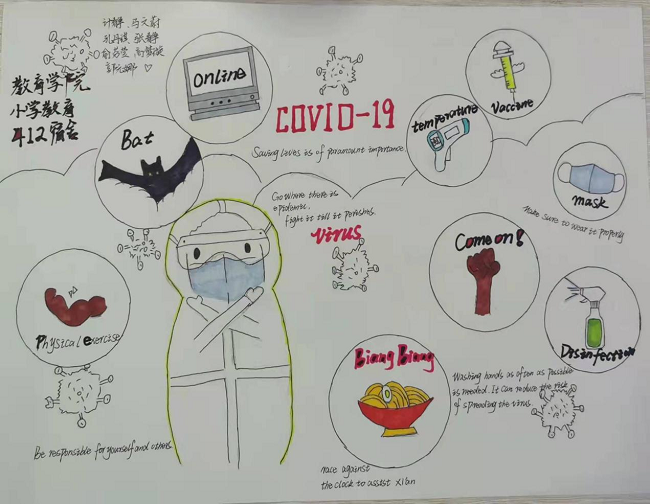 教育学院
小学教育
412宿舍
Online
COVID-19
Saving lives is of paramount importance.
temperature
Vaccine
Bat
Go where there is
epidemic,
fight it till it perishes.
Virus
mask
Make sure to wear it properly
Come on!
Physical Exercise
Disinfection
Biang Biang
Washing hands as often as possible
is needed. It can reduce the risk
of spreading the virus.
Be responsible for yourself and others.
race against
the clock to assist Xi'an